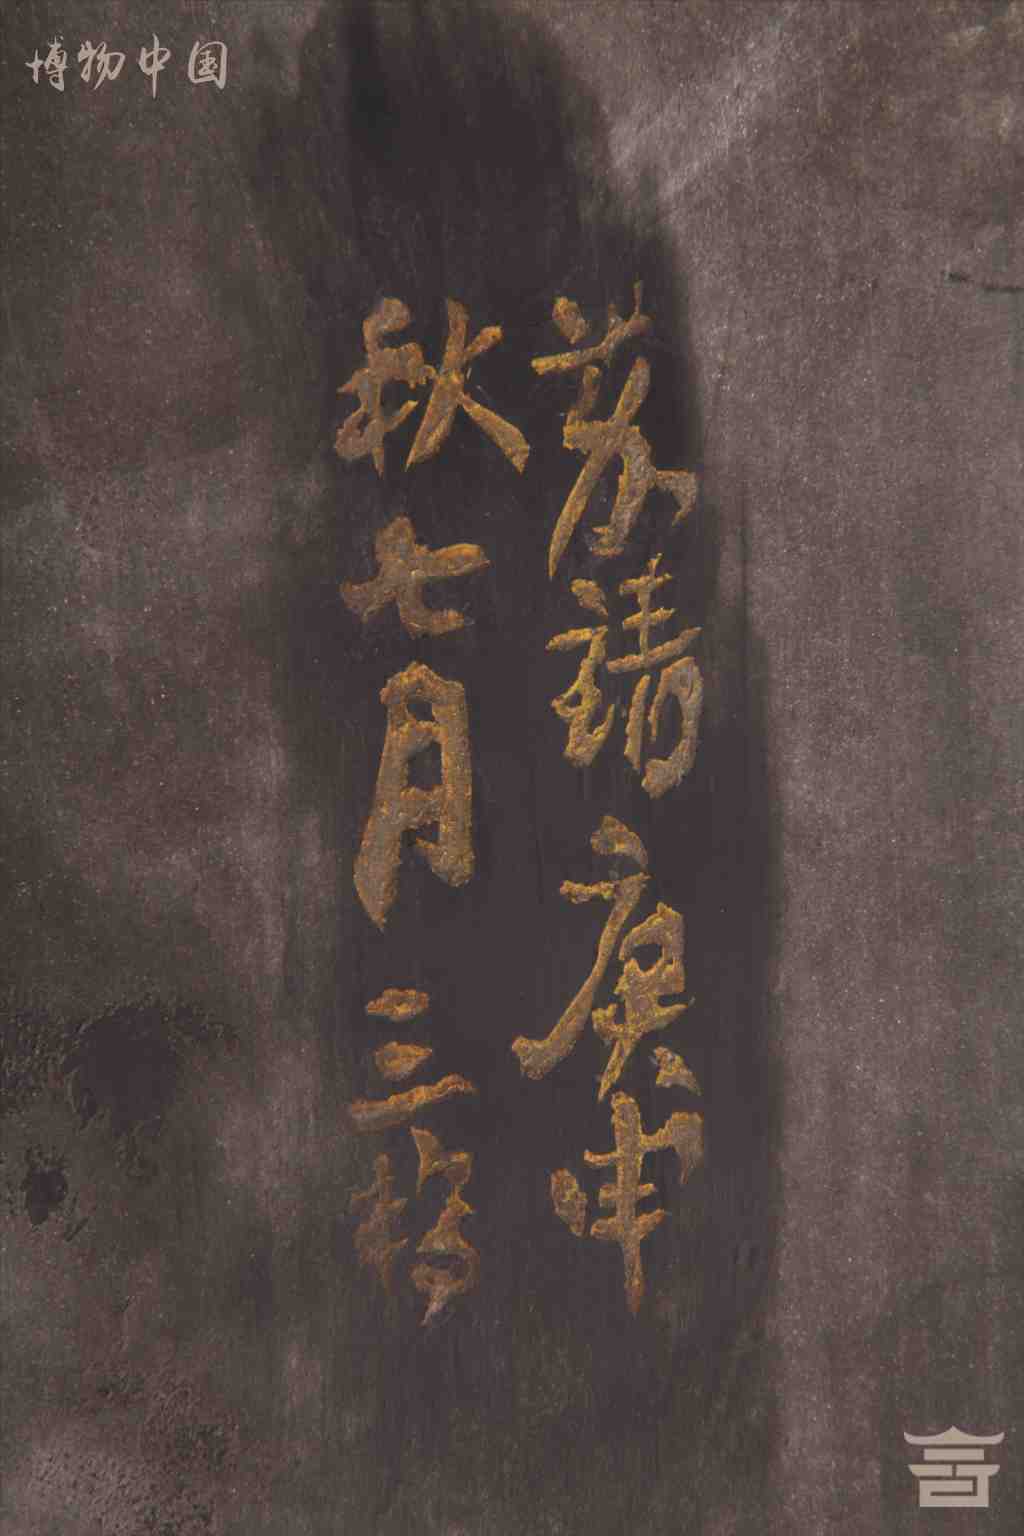 博物中国
嘉靖庚申
秋七月三橋